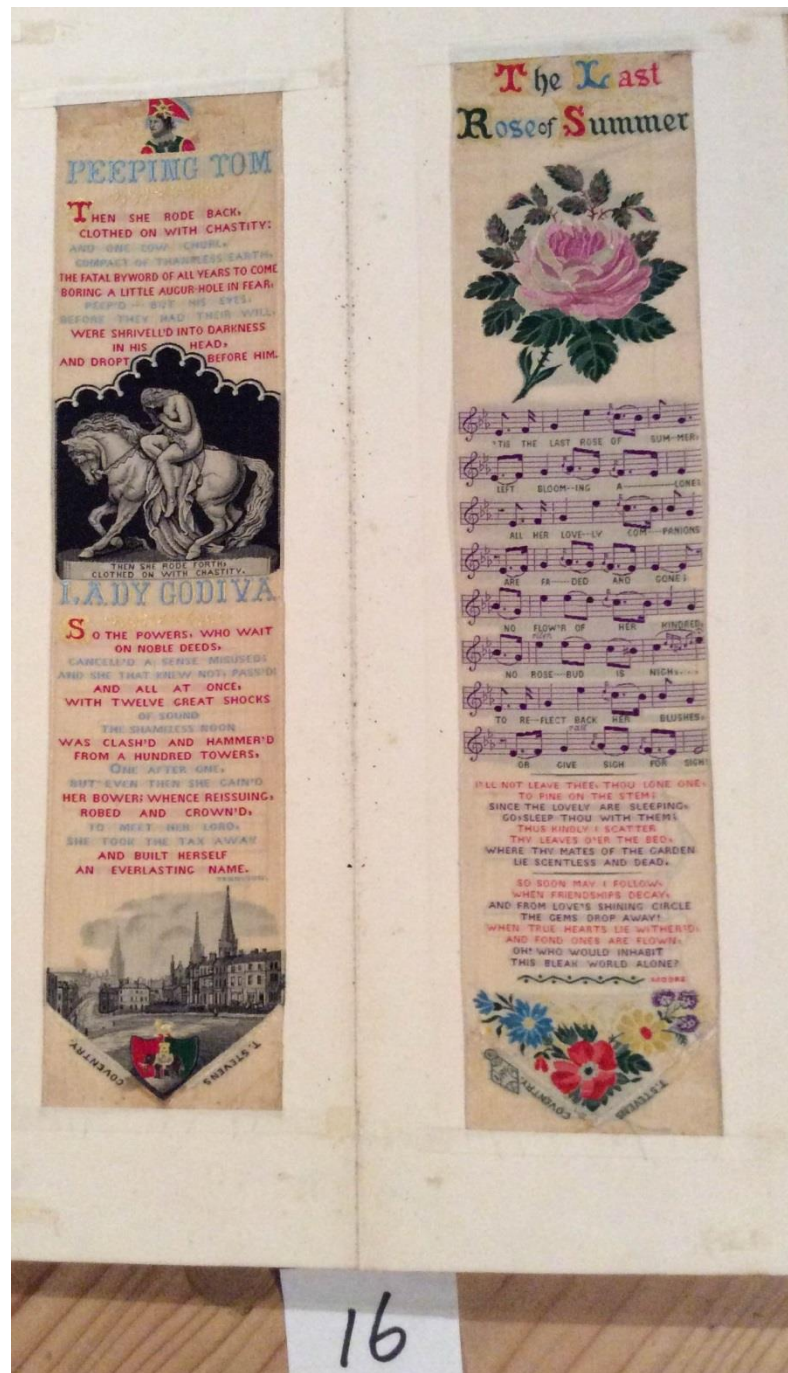 PEEPING TOM
THEN SHE RODE BACK,
CLOTHED ON WITH CHASTITY:
AND ONE LOW CHURL,
COMPACT OF THANKLESS EARTH,
THE FATAL BYWORD OF ALL YEARS TO COME
BORING A LITTLE AUGUR-HOLE IN FEAR,
PEEP'D — BUT HIS EYES,
BEFORE THEY HAD THEIR WILL,
WERE SHRIVELL'D INTO DARKNESS
IN HIS HEAD,
AND DROPT BEFORE HIM.
THEN SHE RODE FORTH,
CLOTHED ON WITH CHASTITY.
LADY GODIVA
SO THE POWERS, WHO WAIT
ON NOBLE DEEDS,
CANCELL'D A SENSE MISUSED;
AND SHE THAT KNEW NOT, PASS'D:
AND ALL AT ONCE,
WITH TWELVE GREAT SHOCKS
OF SOUND
THE SHAMELESS NOON
WAS CLASH'D AND HAMMER'D
FROM A HUNDRED TOWERS,
ONE AFTER ONE,
BUT EVEN THEN SHE GAIN'D
HER BOWER; WHENCE REISSUING,
ROBED AND CROWN'D,
TO MEET HER LORD,
SHE TOOK THE TAX AWAY
AND BUILT HERSELF
AN EVERLASTING NAME.
TENNYSON.
COVENTRY.
T. STEVENS
The Last
Rose of Summer
'TIS THE LAST ROSE OF SUM--MER,
LEFT BLOOM--ING A------LONE;
ALL HER LOVE--LY COM--PANIONS
ARE FA--DED AND GONE;
NO FLOW'R OF HER KINDRED,
NO ROSE--BUD IS NIGH,....
TO RE--FLECT BACK HER BLUSHES,
OR GIVE SIGH FOR SIGH!
I'LL NOT LEAVE THEE, THOU LONE ONE,
TO PINE ON THE STEM;
SINCE THE LOVELY ARE SLEEPING,
GO, SLEEP THOU WITH THEM;
THUS KINDLY I SCATTER
THY LEAVES O'ER THE BED,
WHERE THY MATES OF THE GARDEN
LIE SCENTLESS AND DEAD.
SO SOON MAY I FOLLOW,
WHEN FRIENDSHIPS DECAY,
AND FROM LOVE'S SHINING CIRCLE
THE GEMS DROP AWAY!
WHEN TRUE HEARTS LIE WITHER'D,
AND FOND ONES ARE FLOWN,
OH! WHO WOULD INHABIT
THIS BLEAK WORLD ALONE?
MOORE
COVENTRY.
T. STEVENS
16